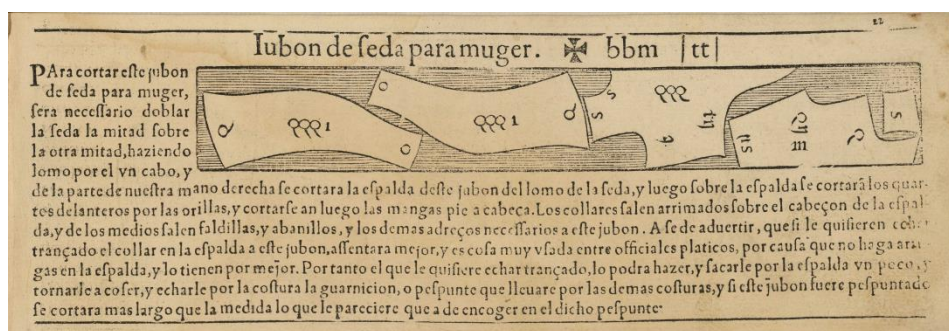 22
Iubon de ſeda para muger. ✠ bbm |tt|
PAra cortar eſte jubon
de ſeda para muger,
ſera neceſſario doblar
la ſeda la mitad ſobre
la otra mitad, haziendo
lomo por el vn cabo, y
de la parte de nueſtra mano derecha ſe cortara la eſpalda deſte jubon del lomo de la ſeda, y luego ſobre la eſpalda ſe cortarã los quar-
tos delanteros por las orillas, y cortarſe an luego las mangas pie a cabeça. Los collares ſalen arrimados ſobre el cabeçon de la eſpal-
da, y de los medios ſalen faldillas, y abanillos, y los demas adreços neceſſarios a eſte jubon. A ſe de aduertir, que ſi le quiſieren echar
trançado el collar en la eſpalda a eſte jubon, aſſentara mejor, y es coſa muy vſada entre officiales platicos, por cauſa que no haga arru-
gas en la eſpalda, y lo tienen por mejor. Por tanto el que le quiſiere echar trançado, lo podra hazer, y ſacarle por la eſpalda vn poco, y
tornarle a coſer, y echarle por la coſtura la guarnicion, o peſpunte que lleuare por las demas coſturas, y ſi eſte jubon fuere peſpuntado
ſe cortara mas largo que la medida lo que le pareciere que a de encoger en el dicho peſpunte.